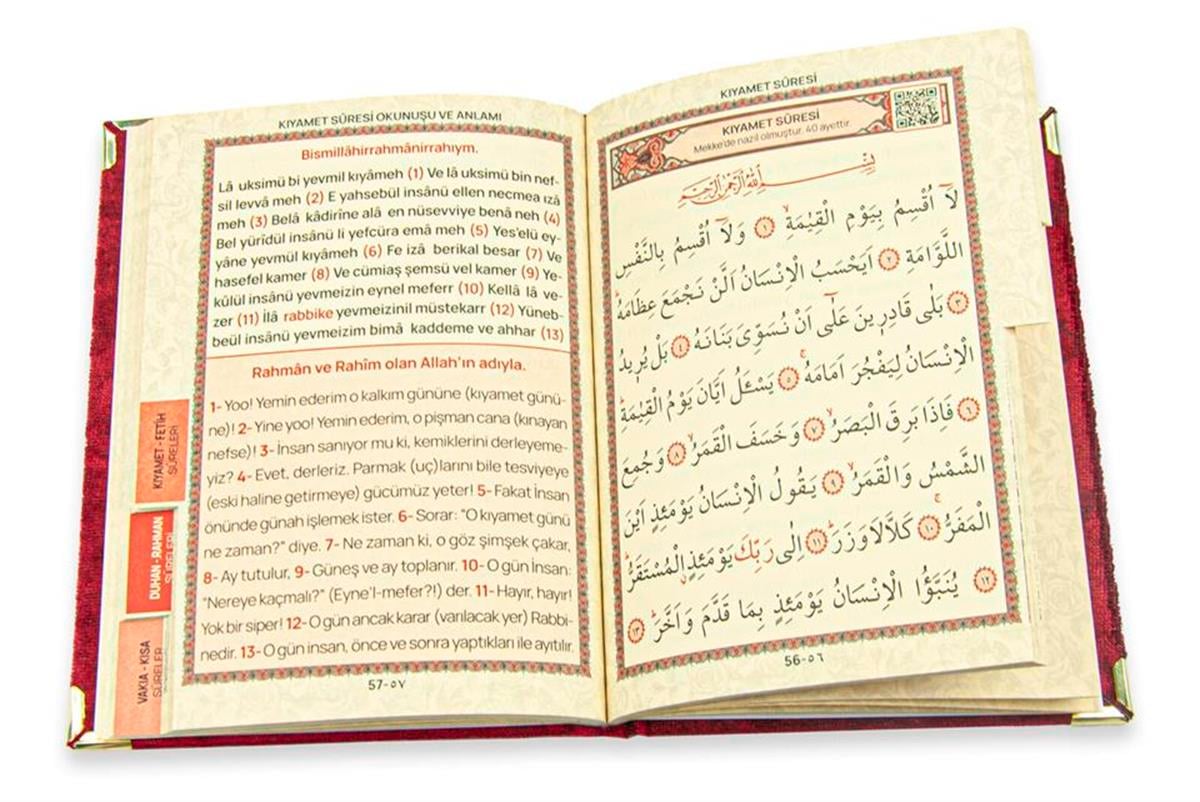 KIYAMET SÛRESİ
KIYAMET SÛRESİ
Mekke'de nazil olmuştur. 40 ayettir.
بِسْمِ اللّٰهِ الرَّحْمٰنِ الرَّحِيمِ
لَٓا اُقْسِمُ بِيَوْمِ الْقِيٰمَةِۙ ﴿١﴾ وَلَٓا اُقْسِمُ بِالنَّفْسِ
اللَّوَّامَةِ ﴿٢﴾ اَيَحْسَبُ الْاِنْسَانُ اَلَّنْ نَجْمَعَ عِظَامَهُۜ
﴿٣﴾ بَلٰى قَادِر۪ينَ عَلٰٓى اَنْ نُسَوِّيَ بَنَانَهُ ﴿٤﴾ بَلْ يُر۪يدُ
الْاِنْسَانُ لِيَفْجُرَ اَمَامَهُۚ ﴿٥﴾ يَسْـَٔلُ اَيَّانَ يَوْمُ الْقِيٰمَةِۜ
﴿٦﴾ فَاِذَا بَرِقَ الْبَصَرُۙ ﴿٧﴾ وَخَسَفَ الْقَمَرُۙ ﴿٨﴾ وَجُمِعَ
الشَّمْسُ وَالْقَمَرُۙ ﴿٩﴾ يَقُولُ الْاِنْسَانُ يَوْمَئِذٍ اَيْنَ
الْمَفَرُّۚ ﴿١٠﴾ كَلَّا لَا وَزَرَۜ ﴿١١﴾ اِلٰى رَبِّكَ يَوْمَئِذٍۨ الْمُسْتَقَرُّۜ
﴿١٢﴾ يُنَبَّؤُا الْاِنْسَانُ يَوْمَئِذٍ بِمَا قَدَّمَ وَاَخَّرَۜ ﴿١٣﴾
56-٥٦
KIYAMET SÛRESİ OKUNUŞU VE ANLAMI
Bismillâhirrahmânirrahıym.
Lâ uksimü bi yevmil kıyâmeh (1) Ve lâ uksimü bin nef-
sil levvâ meh (2) E yahsebül insânü ellen necmea ızâ
meh (3) Belâ kâdirîne alâ en nüsevviye benâ neh (4)
Bel yürîdül insânü li yefcüra emâ meh (5) Yes'elü ey-
yâne yevmül kıyâmeh (6) Fe izâ berikal besar (7) Ve
hasefel kamer (8) Ve cümiaş şemsü vel kamer (9) Ye-
kûlül insânü yevmeizin eynel meferr (10) Kellâ lâ ve-
zer (11) İlâ rabbike yevmeizinil müstekarr (12) Yüneb-
beül insânü yevmeizim bimâ kaddeme ve ahhar (13)
Rahmân ve Rahîm olan Allah'ın adıyla.
1- Yoo! Yemin ederim o kalkım gününe (kıyamet günü-
ne)! 2- Yine yoo! Yemin ederim, o pişman cana (kınayan
nefse)! 3- İnsan sanıyor mu ki, kemiklerini derleyeme-
yiz? 4- Evet, derleriz. Parmak (uç)larını bile tesviyeye
(eski haline getirmeye) gücümüz yeter! 5- Fakat İnsan
önünde günah işlemek ister. 6- Sorar: "O kıyamet günü
ne zaman?" diye. 7- Ne zaman ki, o göz şimşek çakar,
8- Ay tutulur, 9- Güneş ve ay toplanır. 10- O gün İnsan:
"Nereye kaçmalı?" (Eyne'l-mefer?!) der. 11- Hayır, hayır!
Yok bir siper! 12- O gün ancak karar (varılacak yer) Rabbi-
nedir. 13- O gün insan, önce ve sonra yaptıkları ile ayıtılır.
57-٥٧
KIYAMET - FETİH
SÛRELERİ
DUHAN - RAHMAN
SÛRELERİ
VAKIA - KISA
SÛRELER